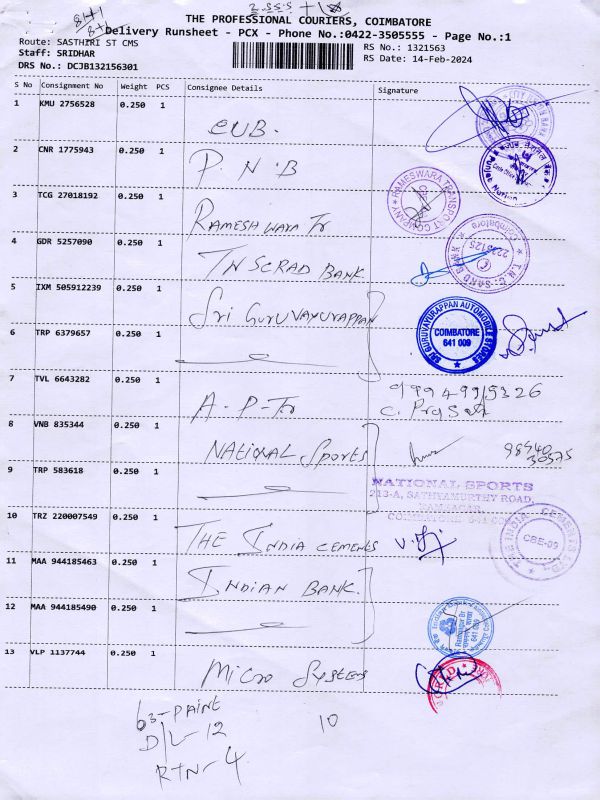 THE PROFESSIONAL COURIERS, COIMBATORE
Delivery Runsheet - PCX - Phone No.:0422-3505555 - Page No.:1
Route: SASTHIRI ST CMS
Staff: SRIDHAR
DRS No.: DCJB132156301
RS No.: 1321563
RS Date: 14-Feb-2024
S No Consignment No Weight PCS Consignee Details Signature
1 KMU 2756528 0.250 1
CUB.
2 CNR 1775943 0.250 1
P.N.B
3 TCG 27018192 0.250 1
RAMESHWARA Tr
RAMESWARA TRANSPORT COMPANY
4 GDR 5257090 0.250 1
TNSCRAD BANK
Coimbatore
5 IXM 505912239 0.250 1
Sri GURUVAYURAPPAN
SRI GURUVAYURAPPAN AUTOMOBILE STORES
COIMBATORE
641 009
6 TRP 6379657 0.250 1
7 TVL 6643282 0.250 1
A-P-Tr
C. Prasath
8 VNB 835344 0.250 1
NATIONAL SPORTS
9 TRP 583618 0.250 1
NATIONAL SPORTS
213-A, SATHYAMURTHY ROAD,
RAMNAGAR,
10 TRZ 220007549 0.250 1
THE INDIA CEMENTS
CBE-09
11 MAA 944185463 0.250 1
INDIAN BANK.
12 MAA 944185490 0.250 1
13 VLP 1137744 0.250 1
MICRO SYSTEMS
63-PAINT
D/L-12
10
RTN-4